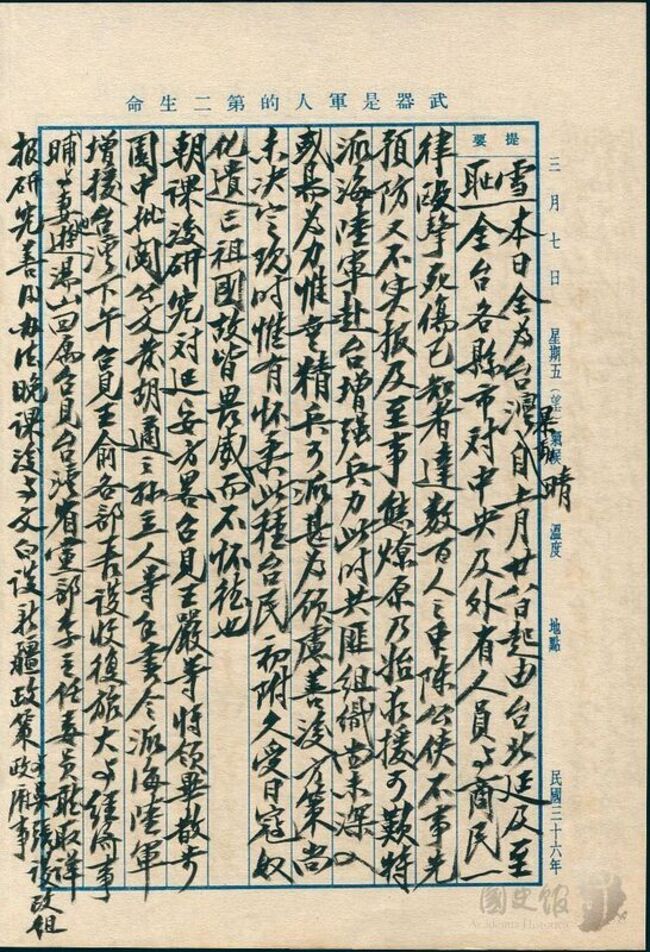 武器是軍人的第二生命
三月七日 星期五（望）氣候 晴 溫度 地點 民國三十六年
提要
雪 本日全為台灣自上月廿八日起由台北延及至
恥 全台各縣市對中央及外省人員与商民一
律毆擊死傷已知者達數百人之眾陳公俠不事先
預防又不实报及至事態燎原乃始求援可歎特
派海陸軍赴台增強兵力此時共匪組織尚未深入
或易為力惟無精兵可派甚為顧慮善後方策尚
未决定現時惟有怀柔此種台民初附久受日寇奴
化遺忘祖國故皆畏威而不怀德也
朝課後研究对延安方畧召見王嚴等將領畢散步
園中批閱公文發胡適之孫立人等手書令派海陸軍
增援台灣下午召見王俞各部長談收復旅大与經济事
晡与妻遊湯山回寓召見台灣省黨部李主任委員聽取詳
报研究善後办法晚課後与文白談新疆政策与吳張談改組政府事
國史館
Academia Historica